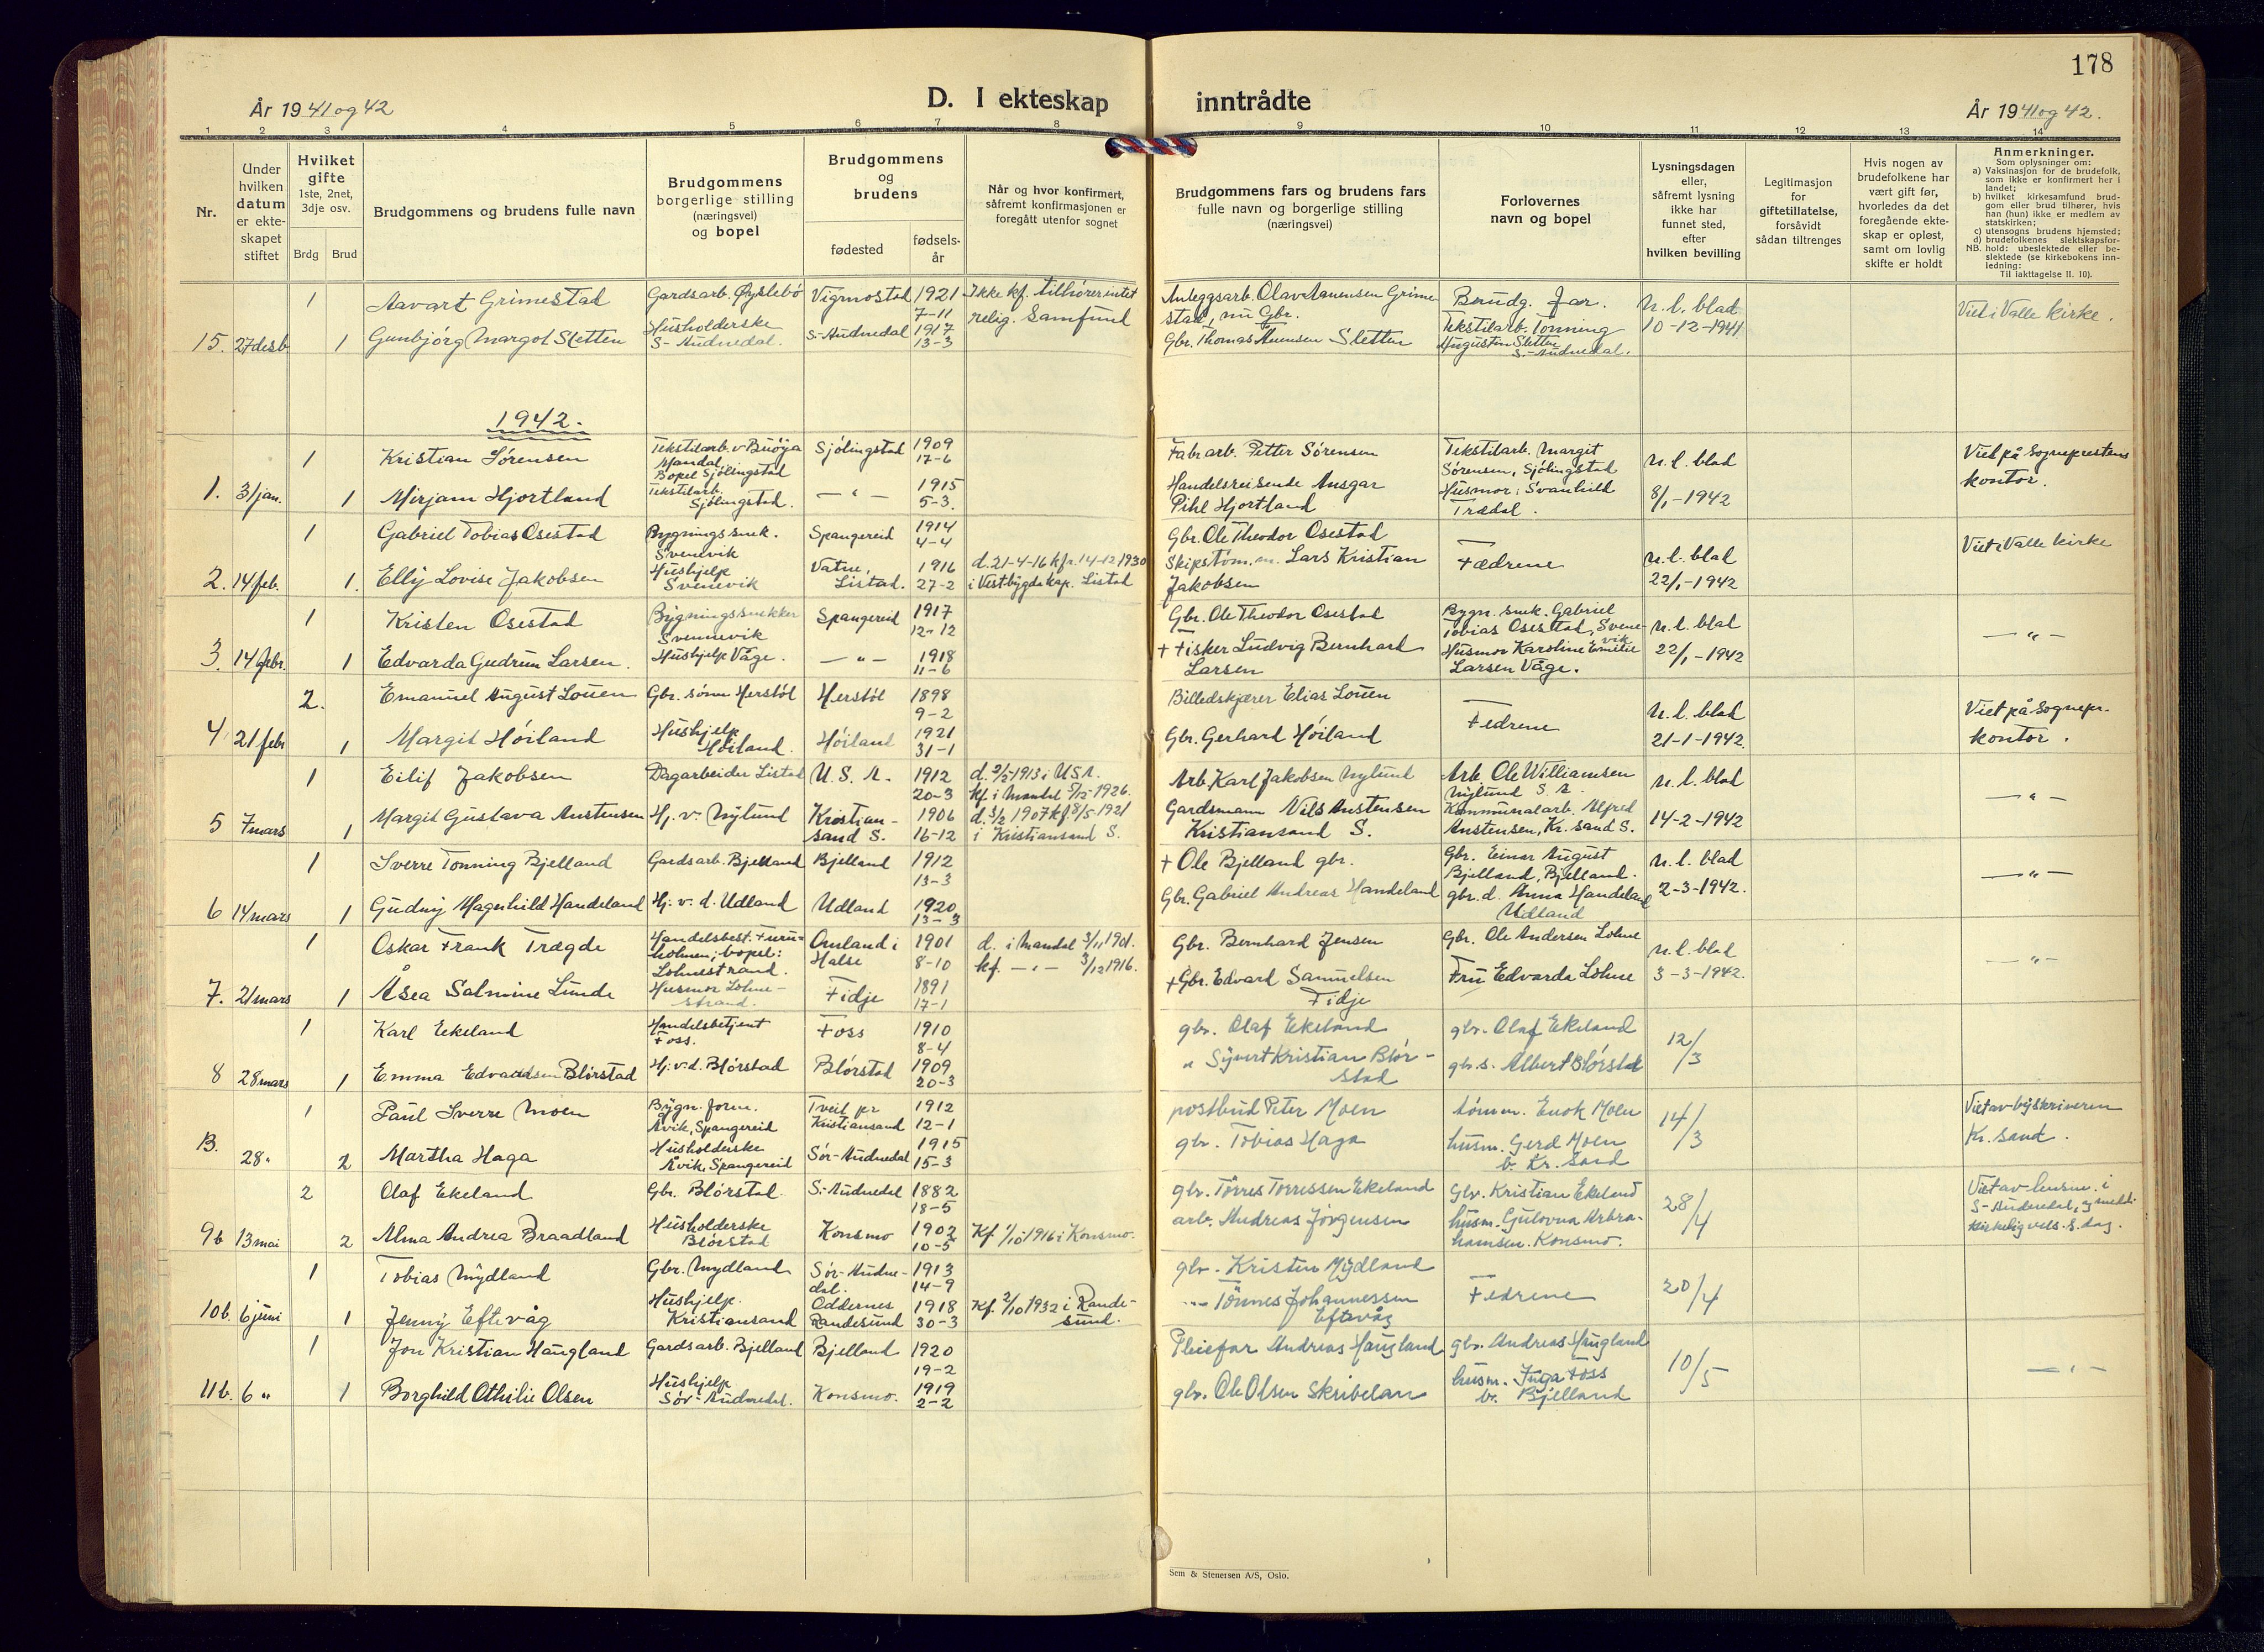 178
År 1941 og 42
D. I ekteskap inntrådte
År 1941 og 42.
1 2 3 4 5 6 7 8 9 10 11 12 13 14
Nr.
Under hvilken datum er ekteskapet stiftet
Hvilket gifte 1ste, 2net, 3dje osv.
Brdg Brud
Brudgommens og brudens fulle navn
Brudgommens borgerlige stilling (næringsvei) og bopel
Brudgommens og brudens
fødested
fødsels-år
Når og hvor konfirmert, såfremt konfirmasjonen er foregått utenfor sognet
Brudgommens fars og brudens fars fulle navn og borgerlige stilling (næringsvei)
Forlovernes navn og bopel
Lysningsdagen eller, såfremt lysning ikke har funnet sted, efter hvilken bevilling
Legitimasjon for giftetillatelse, forsåvidt sådan tiltrenges
Hvis nogen av brudefolkene har vært gift før, hvorledes da det foregående ekteskap er opløst, samt om lovlig skifte er holdt
Anmerkninger.
Som oplysninger om:
a) Vaksinasjon for de brudefolk, som ikke er konfirmert her i landet;
b) hvilket kirkesamfund brudgom eller brud tilhører, hvis han (hun) ikke er medlem av statskirken;
c) utensogns brudens hjemsted;
d) brudefolkenes slektskapsforhold: ubeslektede eller beslektede (se kirkebokens innledning:
NB. Til iakttagelse II. 10).
1 Aavart Grimestad Gardsarb. Øyslebø Vigmostad 1921 7-11 Ikke kf. tilhører intet relig. samfund Anleggsarb. Olav Aanensen Grimestad, nu Gbr. Brudg. far. n.l. blad Viet i Valle kirke.
15. 27 desb 1 Gunbjørg Margot Sletten Husholderske S-Audnedal. S-Audnedal 1917 13-3 Gbr. Thomas Aanensen Sletten Tekstilarb. Tonning Augustin Sletten S.-Audnedal. 10-12-1941
1942.
1 Kristian Sørensen Tekstilarb. v Buøya Mandal, Bopel Sjølingstad Sjølingstad 1909 17-6 Fabr arb. Petter Sørensen Tekstilarb. Margit Sørensen, Sjølingstad n.l. blad Viet på sogneprestens kontor.
1. 31 jan. 1 Mirjam Hjortland Tekstilarb. Sjølingstad. — " — 1915 5-3. Handelsreisende Ansgar Pihl Hjortland Husmor: Svanhild Trædal. 8/1-1942
1 Gabriel Tobias Osestad Bygningssnek. Svenevik Spangereid 1914 4-4 Gbr. Ole Theodor Osestad Fædrene n.l. blad Viet i Valle kirke
2. 14 feb. 1. Elly Lovise Jakobsen Hushjelp Svenevik Vatne, Listad. 1916 27-2 d. 21-4-16 kfr. 14-12-1930 i Vestbygda kap. Listad Skipstøm.m. Lars Kristian Jakobsen 22/1-1942
1 Kristen Osestad Bygningssnekker Svennevik Spangereid 1917 12-12 Gbr. Ole Theodor Osestad Bygn. snek. Gabriel Tobias Osestad, Svenevik n.l. blad — " —
3. 14 febr. 1 Edvarda Gudrun Larsen. Hushjelp Våge. — " — 1918 11-6 + Fisker Ludvig Bernhard Larsen Husmor Karoline Emilie Larsen Våge. 22/1-1942
2. Emanuel August Louen Gbr. sønn Herstøl Herstøl 1898 9-2 Billedskjærer Elias Louen Fedrene n.l. blad Viet på sognepr. kontor.
4. 21 febr 1 Margit Høiland Hushjelp Høiland. Høiland 1921 31-1 Gbr. Gerhard Høiland 21-1-1942.
1 Eilif Jakobsen Dagarbeider Listad U.S.A. 1912 20-3 d. 2/2-1913 i USA. kf. i Mandal 5/12-1926. Arb. Karl Jakobsen Nylund Arb. Ole Williamsen Nylund S. A. n.l. blad — " —
5 7 mars 1 Margit Gustava Anstensen Hj. v. Nylund Kristiansand S. 1906 16-12 d. 3/2 1907 kf. 8/5-1921 i Kristiansand S. Gardsmann Nils Anstensen Kristiansand S. Kommunalarb. Alfred Anstensen, Kr. sand S. 14-2-1942
1 Sverre Tonning Bjelland Gardsarb. Bjelland Bjelland 1912 13-3 + Ole Bjelland gbr. Gbr. Einar August Bjelland, Bjelland. n.l. blad — " —
6 14 mars 1 Gudny Magnhild Handeland Hj. v. d. Udland Udland 1920 13-3 Gbr. Gabriel Andreas Handeland gbr. d. Anna Handeland Udland 2-3-1942.
1 Oskar Frank Trægde Handelsbest. Furuholmen; bopel: Lohnestrand. Omland i Halse 1901 8-10 d. i Mandal 3/11 1901. kf. — " — 3/12 1916. Gbr. Bernhard Jensen Gbr. Ole Andersen Lohne n.l. blad — " —
7. 21 mars 1 Åsea Salmine Lunde Husmor Lohnestrand. Fidje 1891 17-1 + Gbr. Edvard Samuelsen Fidje Fru Edvarda Lohne 3-3-1942.
1 Karl Eikeland Handelsbetjent Foss. Foss 1910 8-4 gbr. Olaf Eikeland gbr. Olaf Eikeland 12/3
8 28 mars 1 Emma Edvardsen Blørstad Hj. v. d. Blørstad Blørstad 1909 20-3 " Syvert Kristian Blørstad gbr. s. Albert Blørstad
1 Paul Sverre Moen Bygn. form. Åvik, Spangereid Tveit pr Kristiansand 1912 12-1 postbud Peter Moen tømm. Enok Moen 14/3 Viet av byskriveren Kr. sand.
B. 28 " 2 Martha Haga Husholderske Åvik, Spangereid Sør-Audnedal 1915 15-3 gbr. Tobias Haga husm. Gerd Moen b. Kr. sand
2 Olaf Eikeland Gbr. Blørstad S.-Audnedal 1882 18-5 gbr. Tørres Tørressen Eikeland Gbr. Kristian Eikeland 28/4 Viet av lensm. i S-Audnedal,
9b 13 mai 2 Alma Andrea Braadland Husholderske Blørstad Konsmo 1902 10-5 Kf. 1/10 1916 i Konsmo. arb. Andreas Jørgensen husm. Gulovna Abrahamsen. Konsmo. kirkelig vels. s. dag.
1 Tobias Mydland Gbr. Mydland Sør-Audnedal. 1913 14-9 gbr. Kristen Mydland Fedrene 20/4
10b. 6 juni 1 Jenny Eftevåg Hushjelp. Kristiansand Oddernes Randesund 1918 30-3 Kf. 2/10 1932 i Randesund. " Tønnes Johannessen Eftevåg
1 Jon Kristian Haugland Gardsarb. Bjelland Bjelland 1920 19-2 Pleiefar Andreas Haugland gbr. Andreas Haugland 10/5 — " —
11b. 6 " 1 Borghild Othilie Olsen Hushjelp Sør-Audnedal. Konsmo. 1919 2-2 gbr. Ole Olsen Skribelan husm. Inga Foss b. Bjelland
Sem & Stenersen A/S, Oslo.